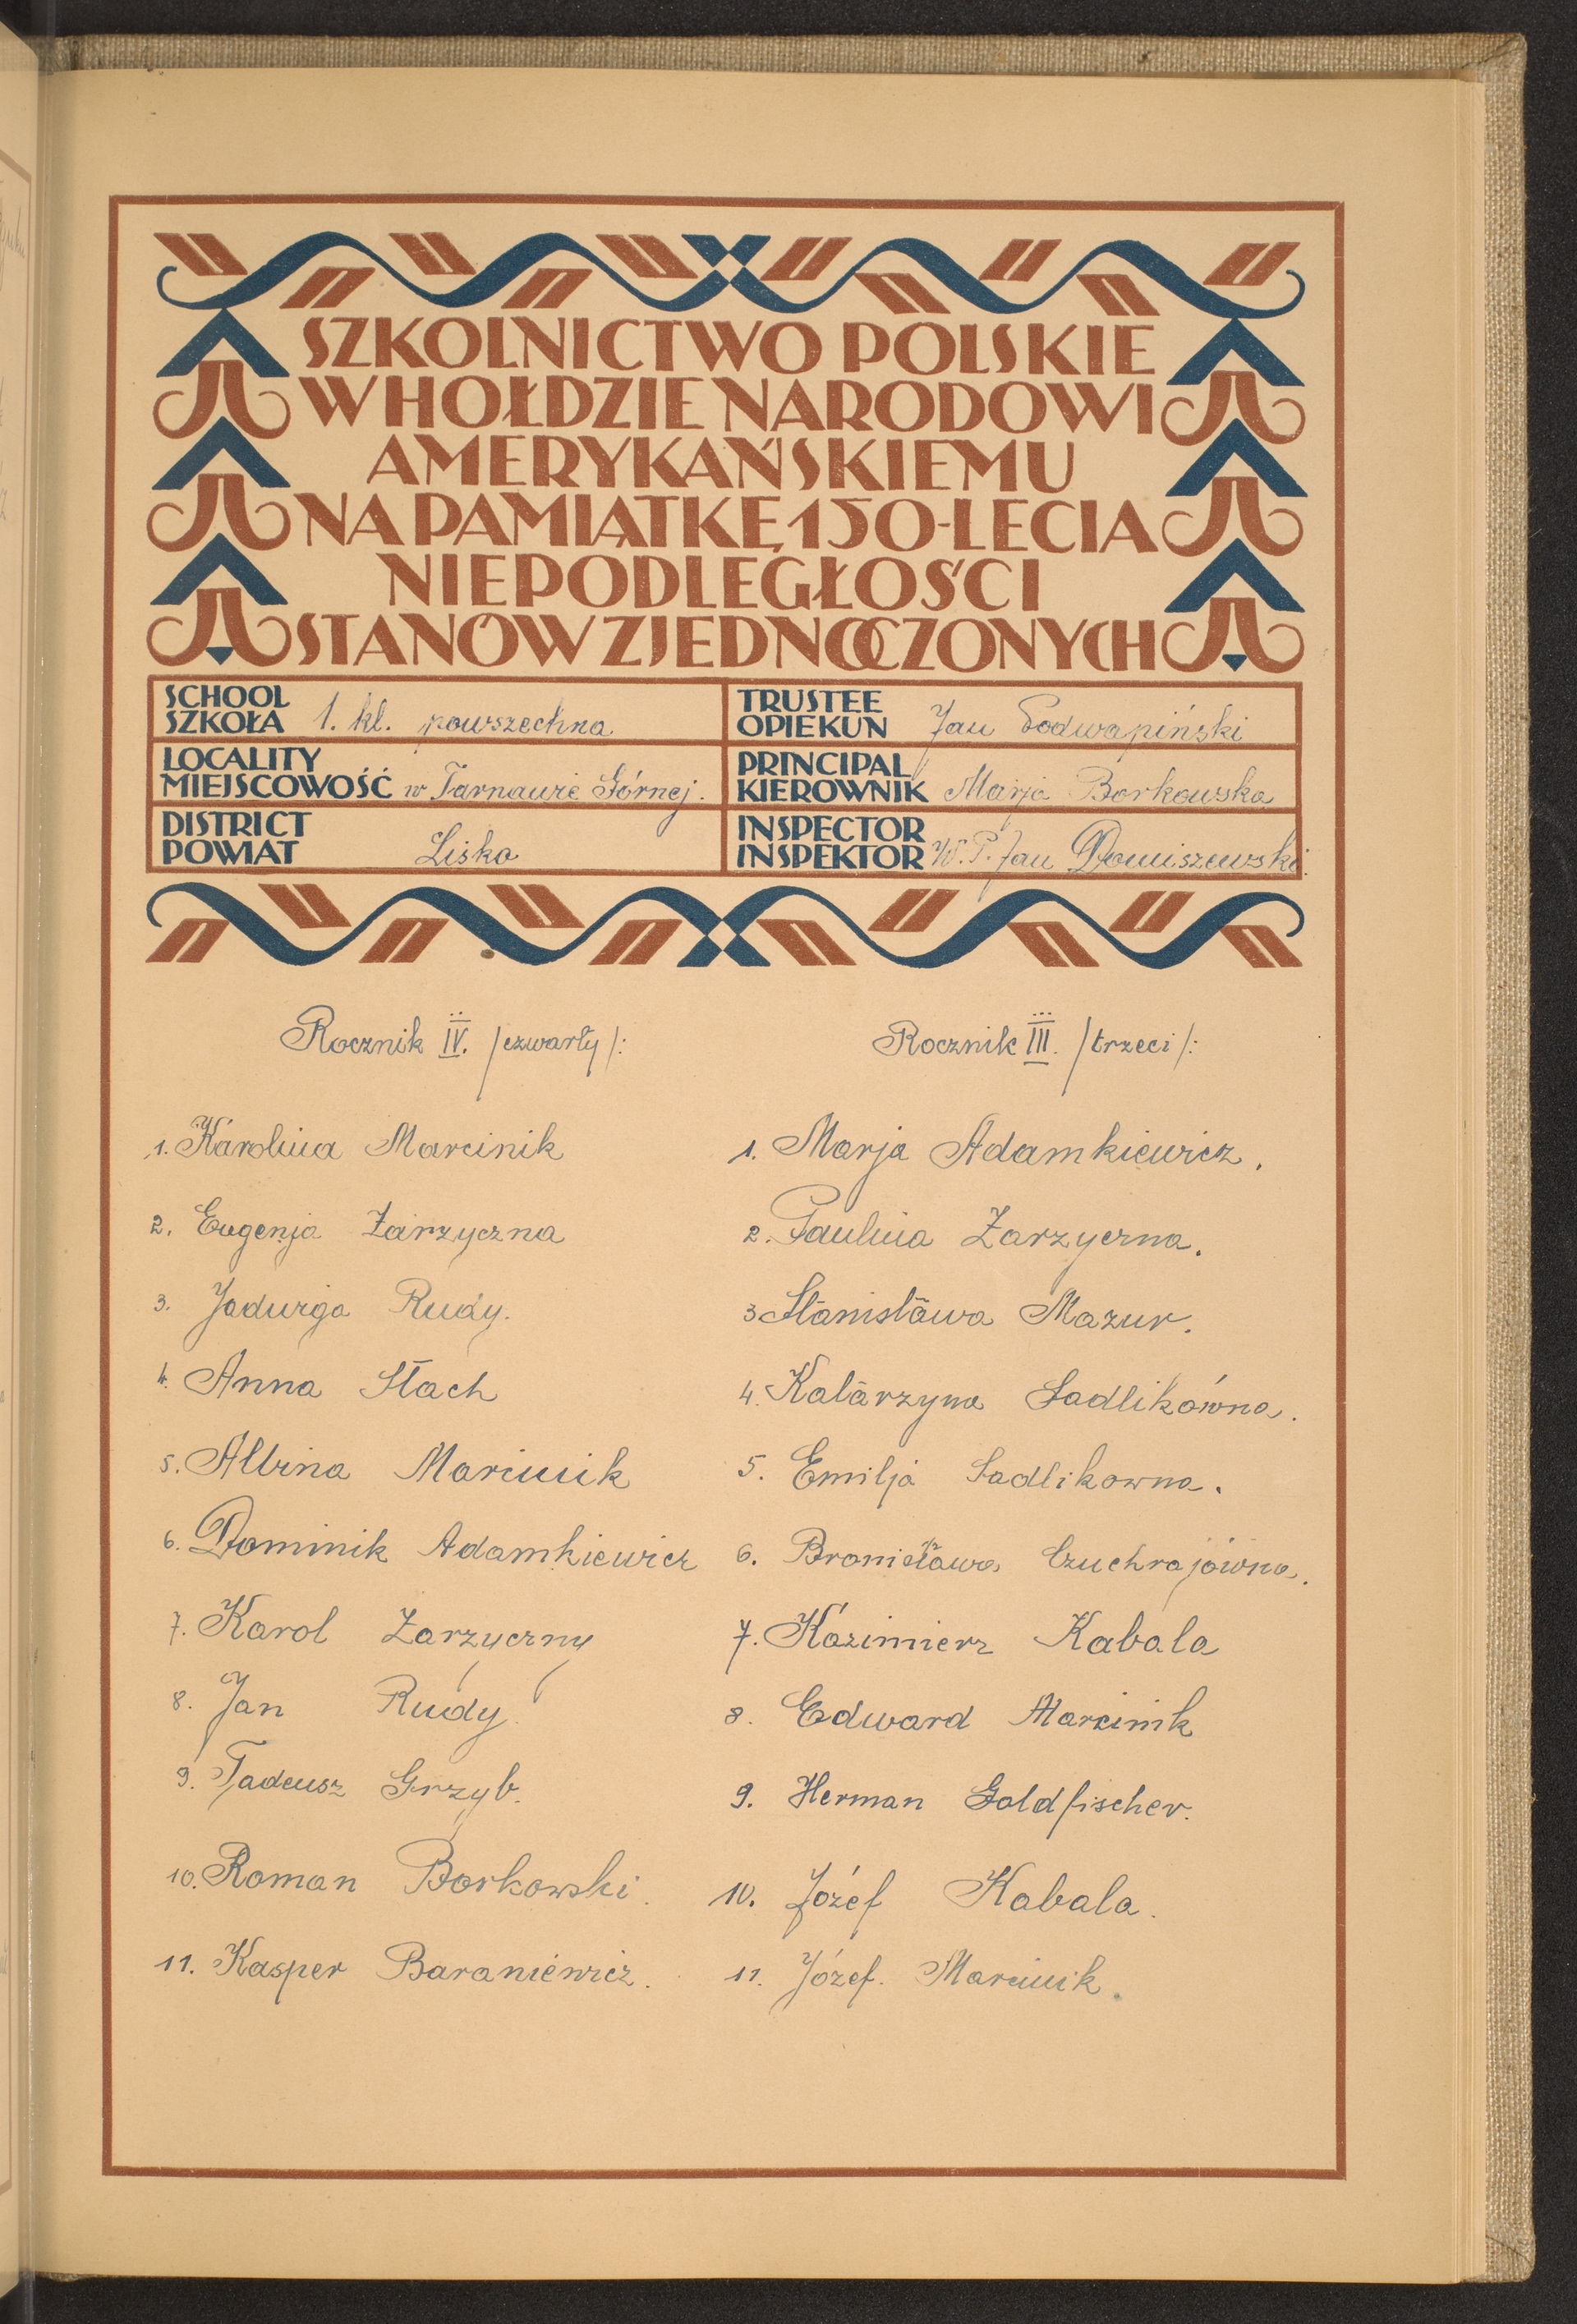 SZKOLNICTWO POLSKIE
W HOŁDZIE NARODOWI
AMERYKAŃSKIEMU
NA PAMIĄTKĘ 150-LECIA
NIEPODLEGŁOŚCI
STANÓW ZJEDNOCZONYCH
SCHOOL
SZKOŁA 1. kl. powszechna
LOCALITY
MIEJSCOWOŚĆ w Tarnawie Górnej.
DISTRICT
POWIAT Lisko
TRUSTEE
OPIEKUN Jan Podwapiński
PRINCIPAL
KIEROWNIK Marja Borkowska
INSPECTOR
INSPEKTOR W. P. Jan Domiszewski.
Rocznik IV. /czwarty/:
1. Karolina Marcinik
2. Eugenja Zarzyczna
3. Jadwiga Rudy.
4. Anna Stach
5. Albina Marcinik
6. Dominik Adamkiewicz
7. Karol Zarzyczny
8. Jan Rudy
9. Tadeusz Grzyb.
10. Roman Borkowski.
11. Kasper Baraniewicz.
Rocznik III. /trzeci/:
1. Marja Adamkiewicz.
2. Paulina Zarzyczna.
3 Stanisława Mazur.
4. Katarzyna Sadlikówna.
5. Emilja Sadlikowna.
6. Bronisława Czuchrajówna.
7. Kazimierz Kabala
8. Edward Marcinik
9. Herman Goldfischer.
10. Józef Kabala.
11. Józef. Marcinik.